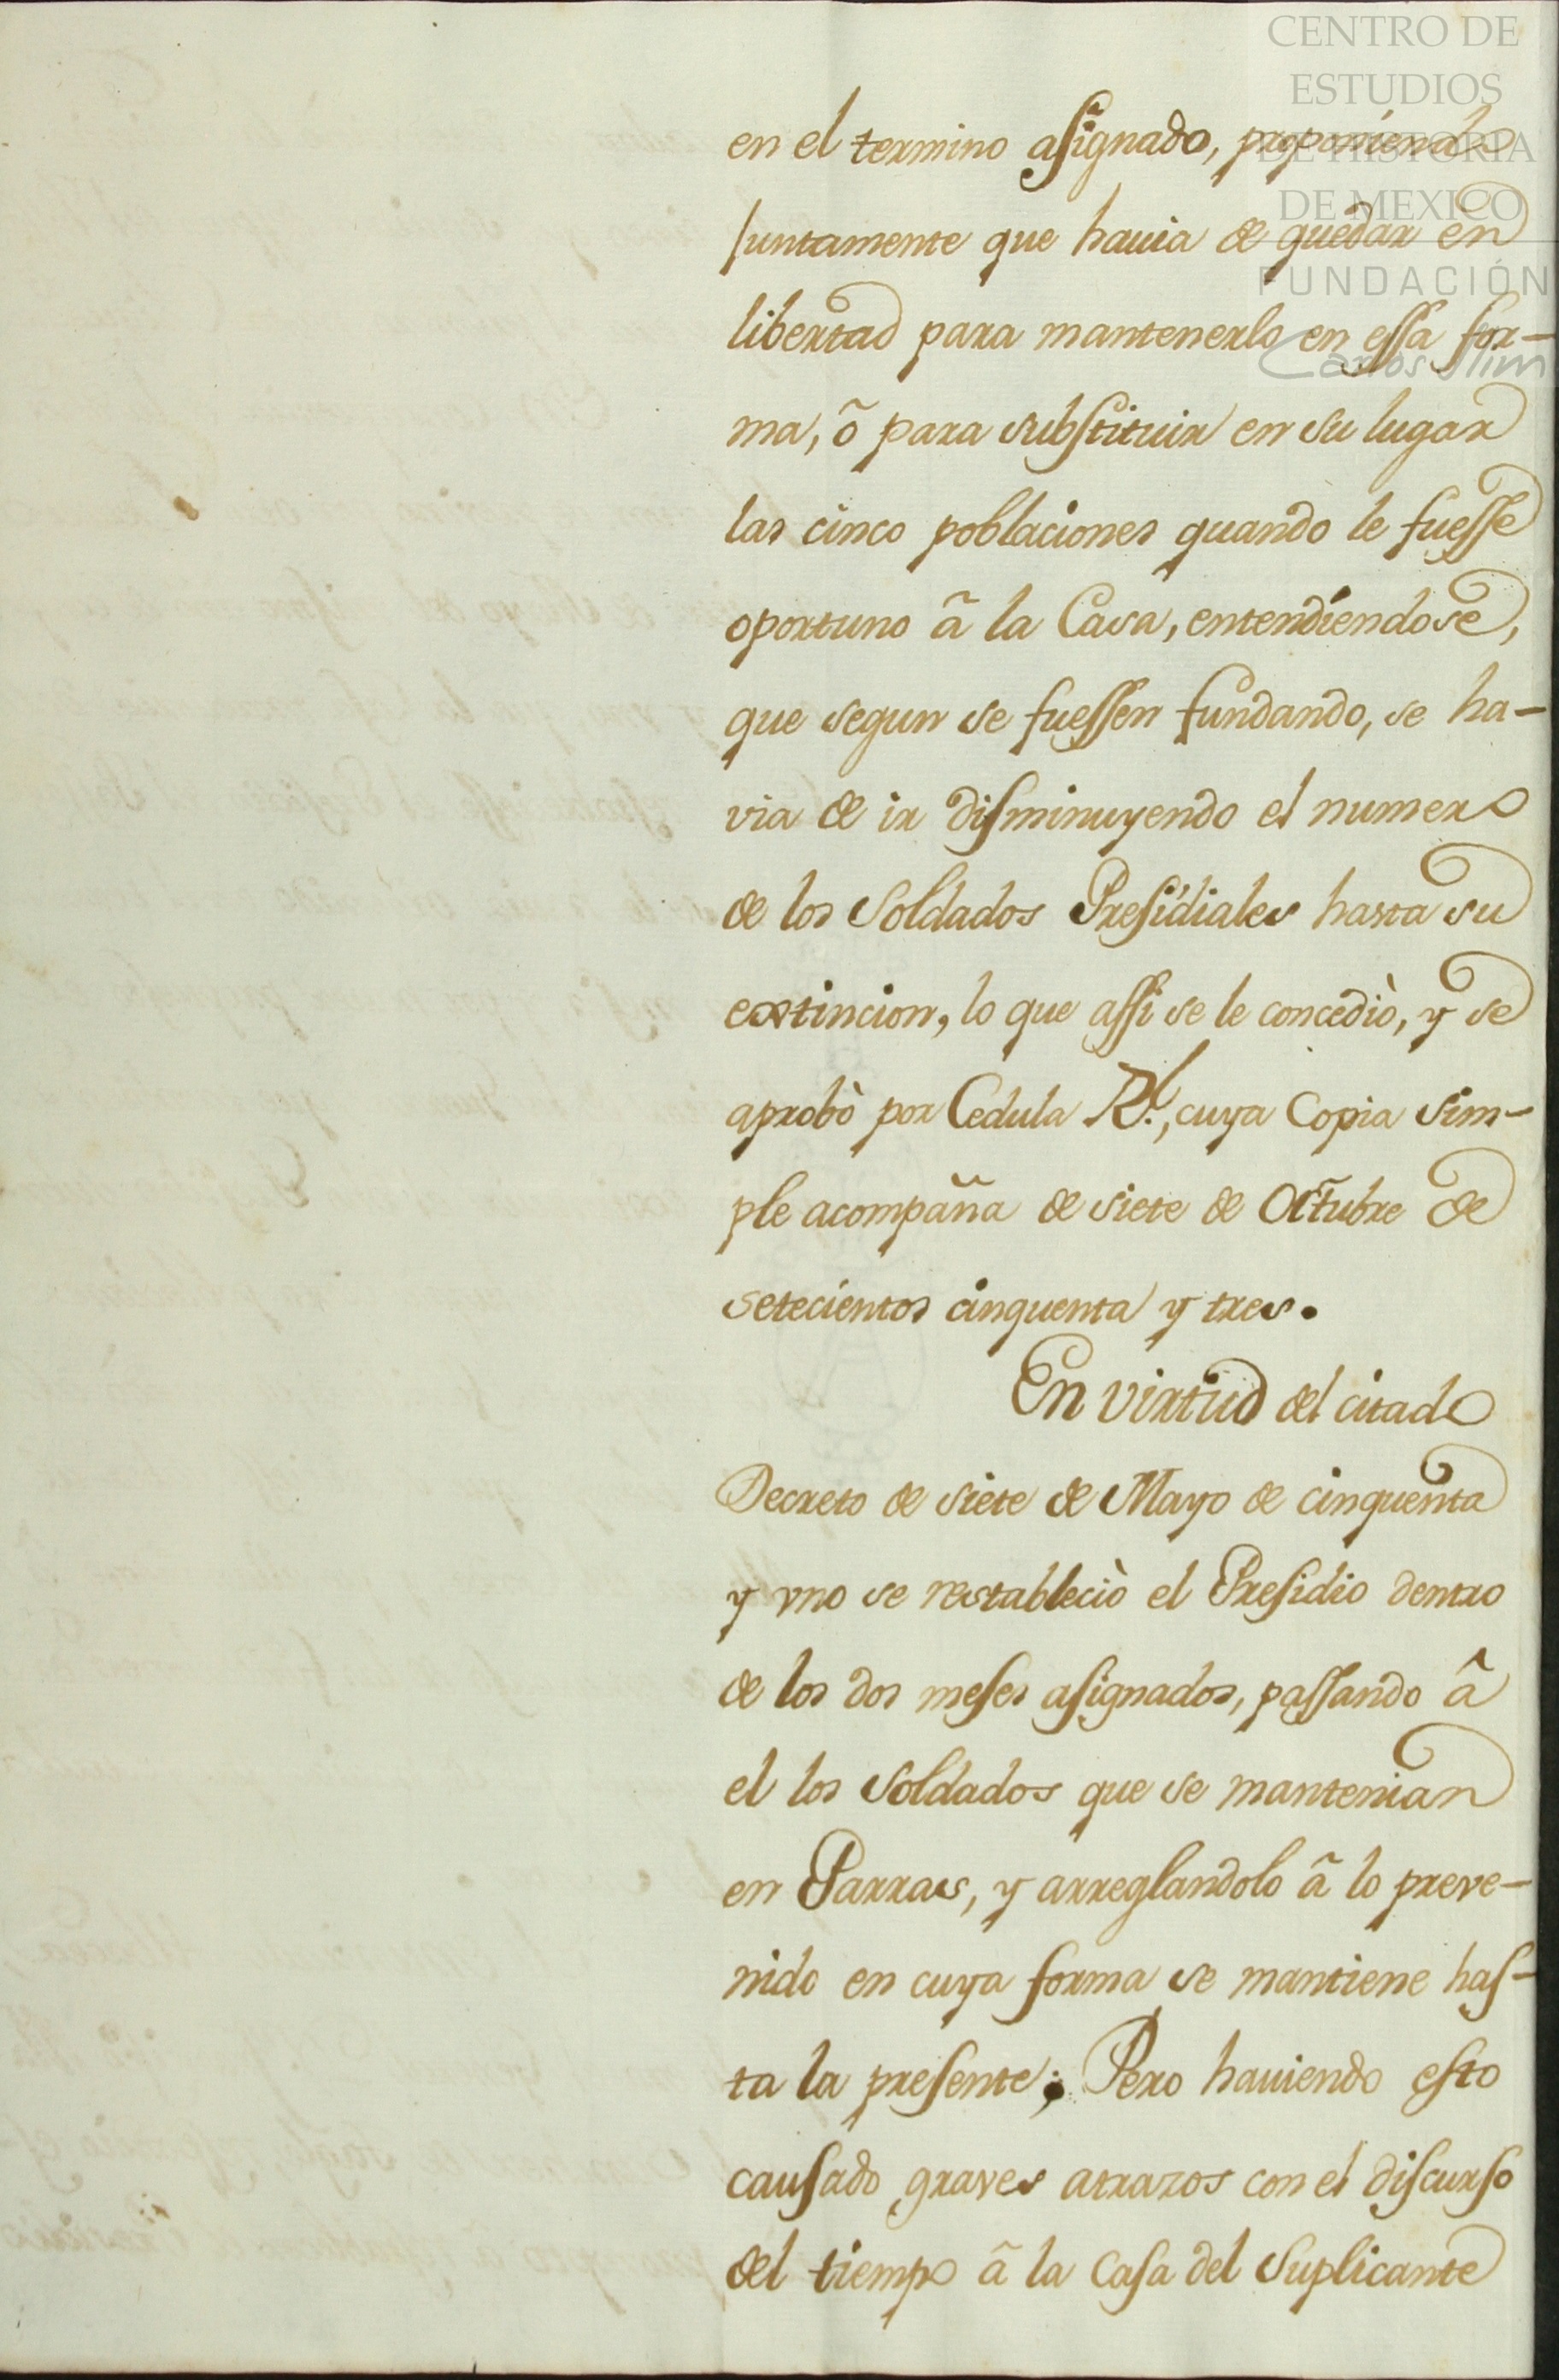 CENTRO DE
ESTUDIOS
DE HISTORIA
DE MEXICO
FUNDACIÓN
Carlos Slim
en el termino asignado, proponiendo
juntamente que hauia de quedar en
libertad para mantenerlo en essa for-
ma, õ para substituir en su lugar
las cinco poblaciones quando le fuesse
oportuno ã la Casa, entendiendose,
que segun se fuessen fundando, se ha-
via de ir disminuyendo el numero
de los Soldados Presidiales hasta su
extincion, lo que assi se le concediò, y se
aprobò por Cedula Rl., cuya Copia sim-
ple acompaña de siete de Octubre de
setecientos cinquenta y tres.
En virtud del citado
Decreto de siete de Mayo de cinquenta
y vno se restableciò el Presidio dentro
de los dos meses asignados, passando ã
el los Soldados que se mantenian
en Parras, y arreglandolo ã lo preve-
nido en cuya forma se mantiene has-
ta la presente; Pero hauiendo esto
causado graves atrazos con el discurso
del tiempo ã la Casa del Suplicante